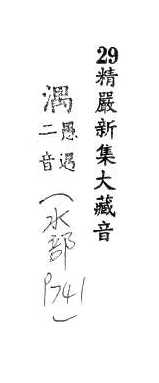 29精嚴新集大藏音
湡愚遇二音(水部P741)